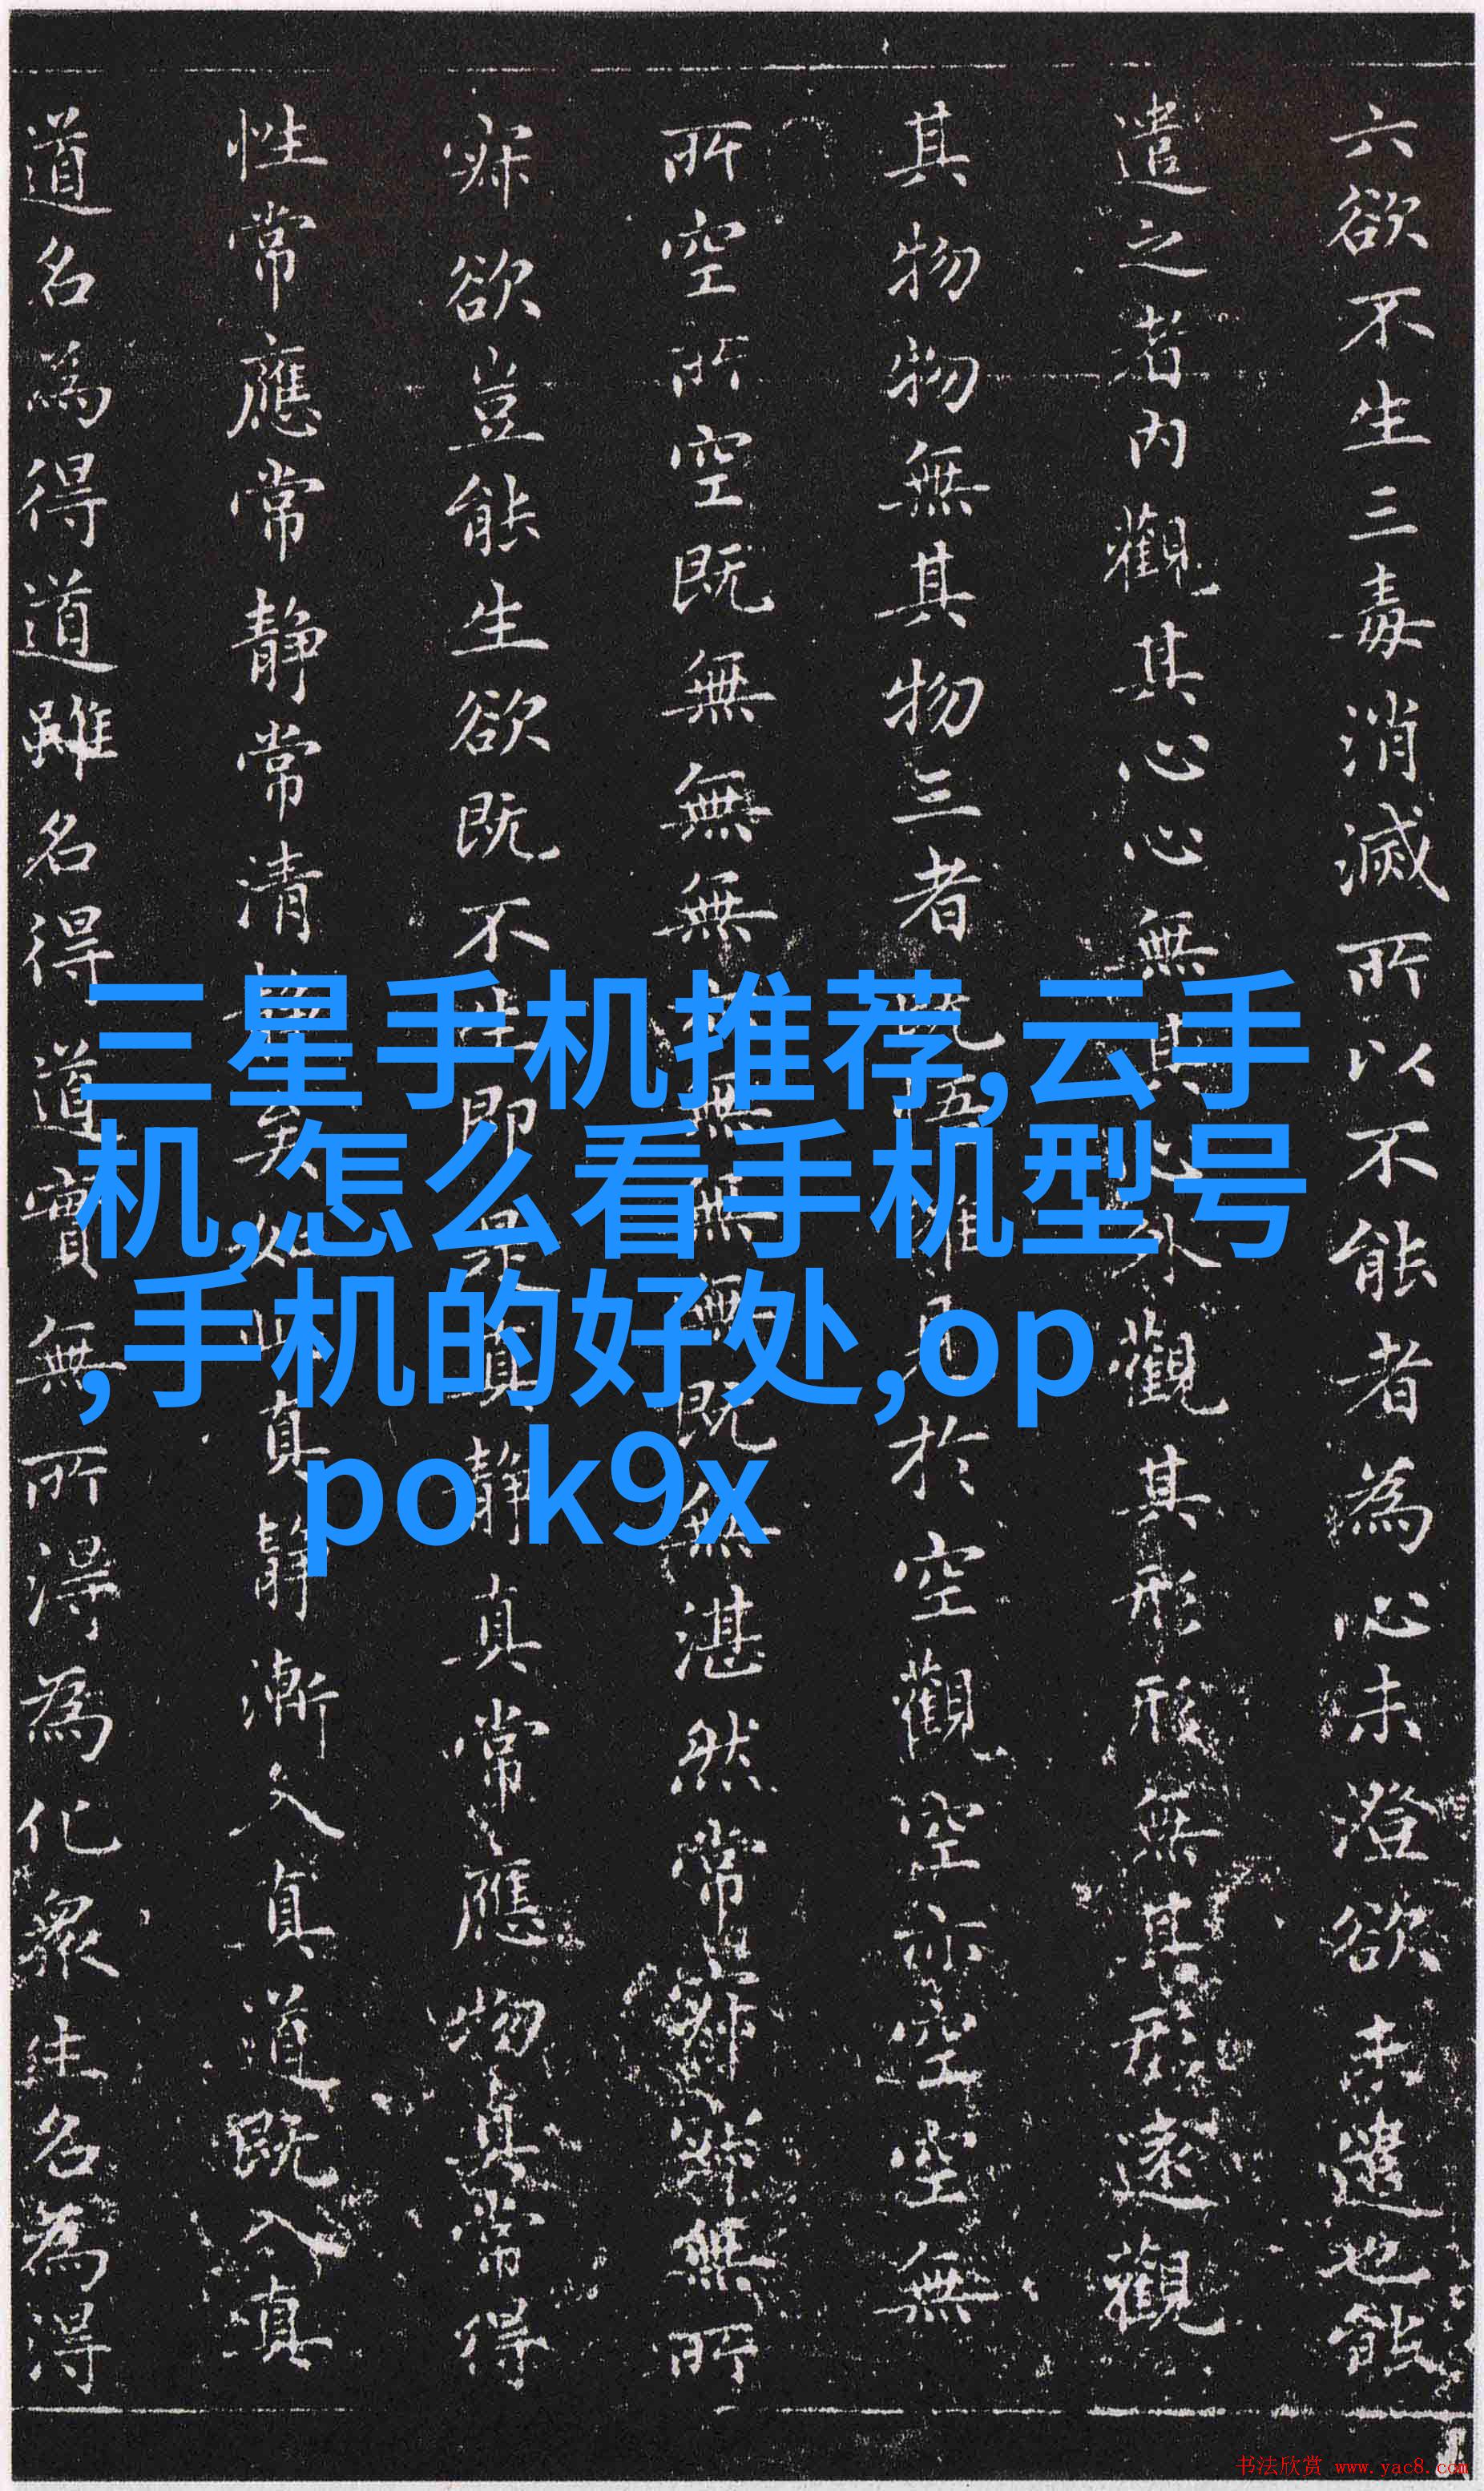 六欲不生三毒消滅所以不能者為心未澄欲未遣也能
遣之者内觀其心心無其心外觀其形形無其形遠觀
其物物無其物三者既悟唯見於空觀空亦空空無
所空所空既無無無亦無無無既無湛然常寂寂無所
寂欲豈能生欲既不生即是真静真常應物真常得
性常應常静常清静矣如此真静漸入真道既入真
道名為得道雖名得道實無所得為化衆生名為得
三星手机推荐,云手
机,怎么看手机型号
,手机的好处,op
po k9x
书法欣赏 www.yac8.com